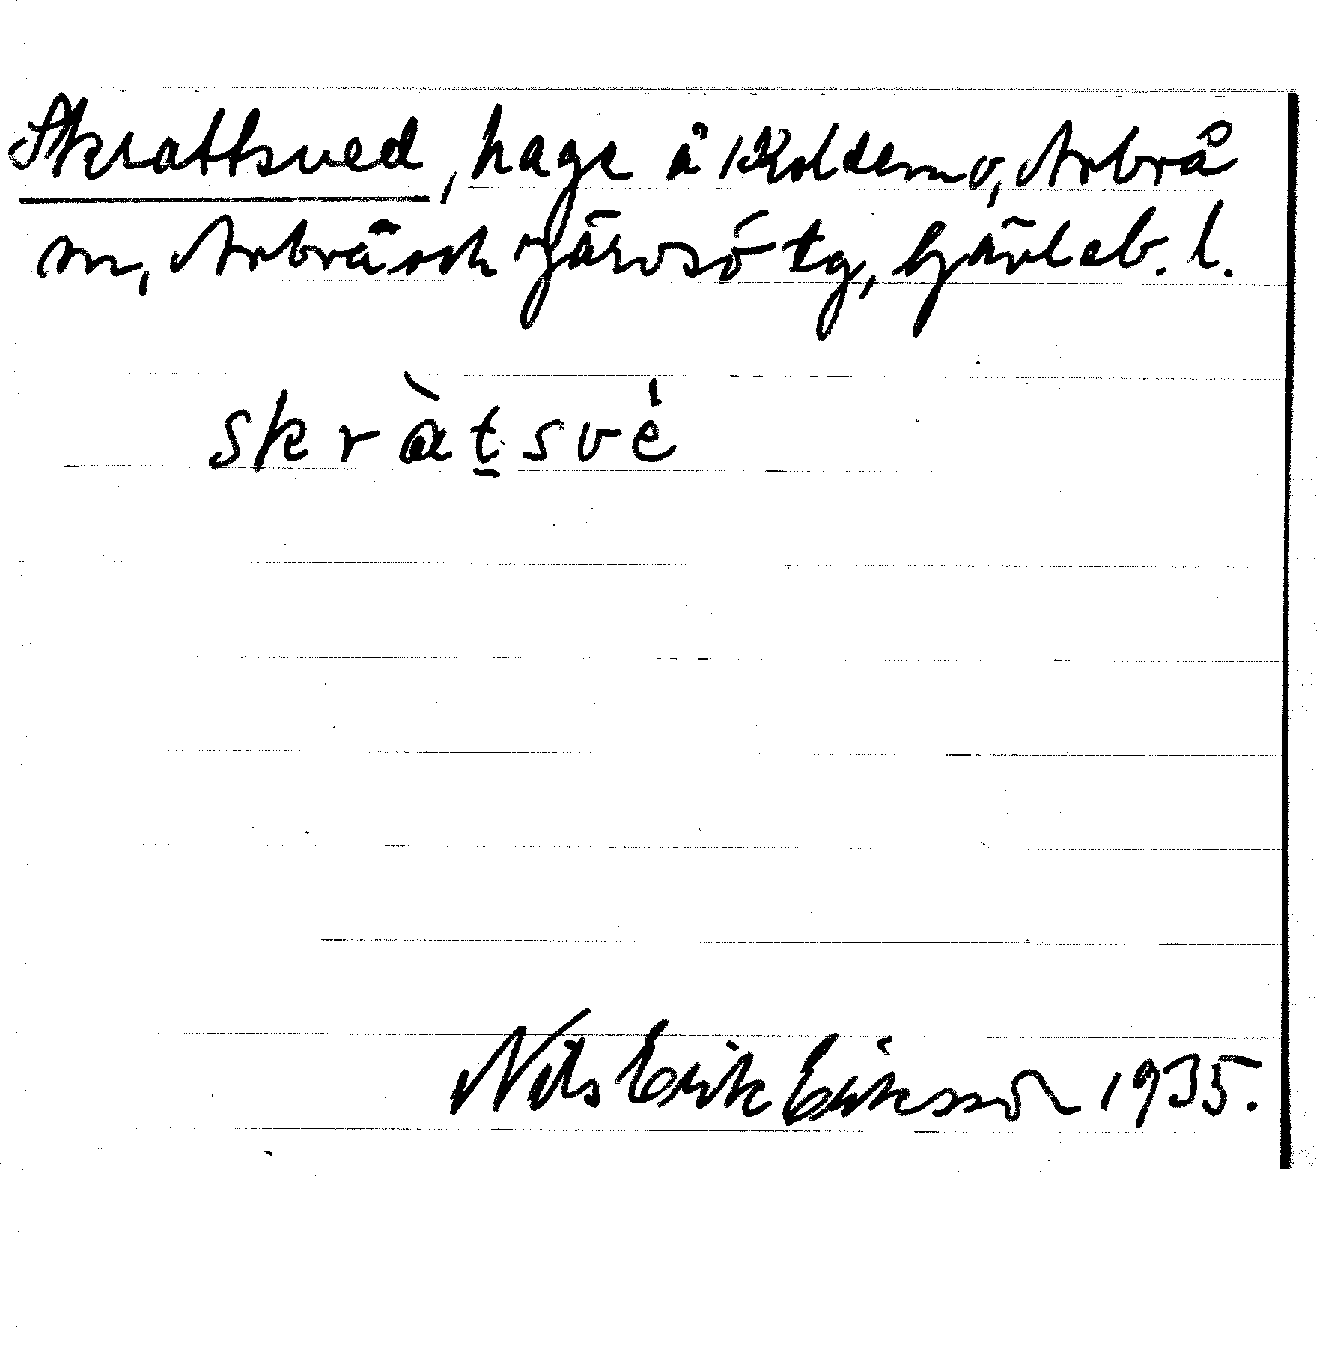 Skrattsved, hage å Koldemo, Arbrå
sn, Arbrå och Järvsö tg, Gävleb. l.
skràt̠své
Nils Erik Eriksson 1935.